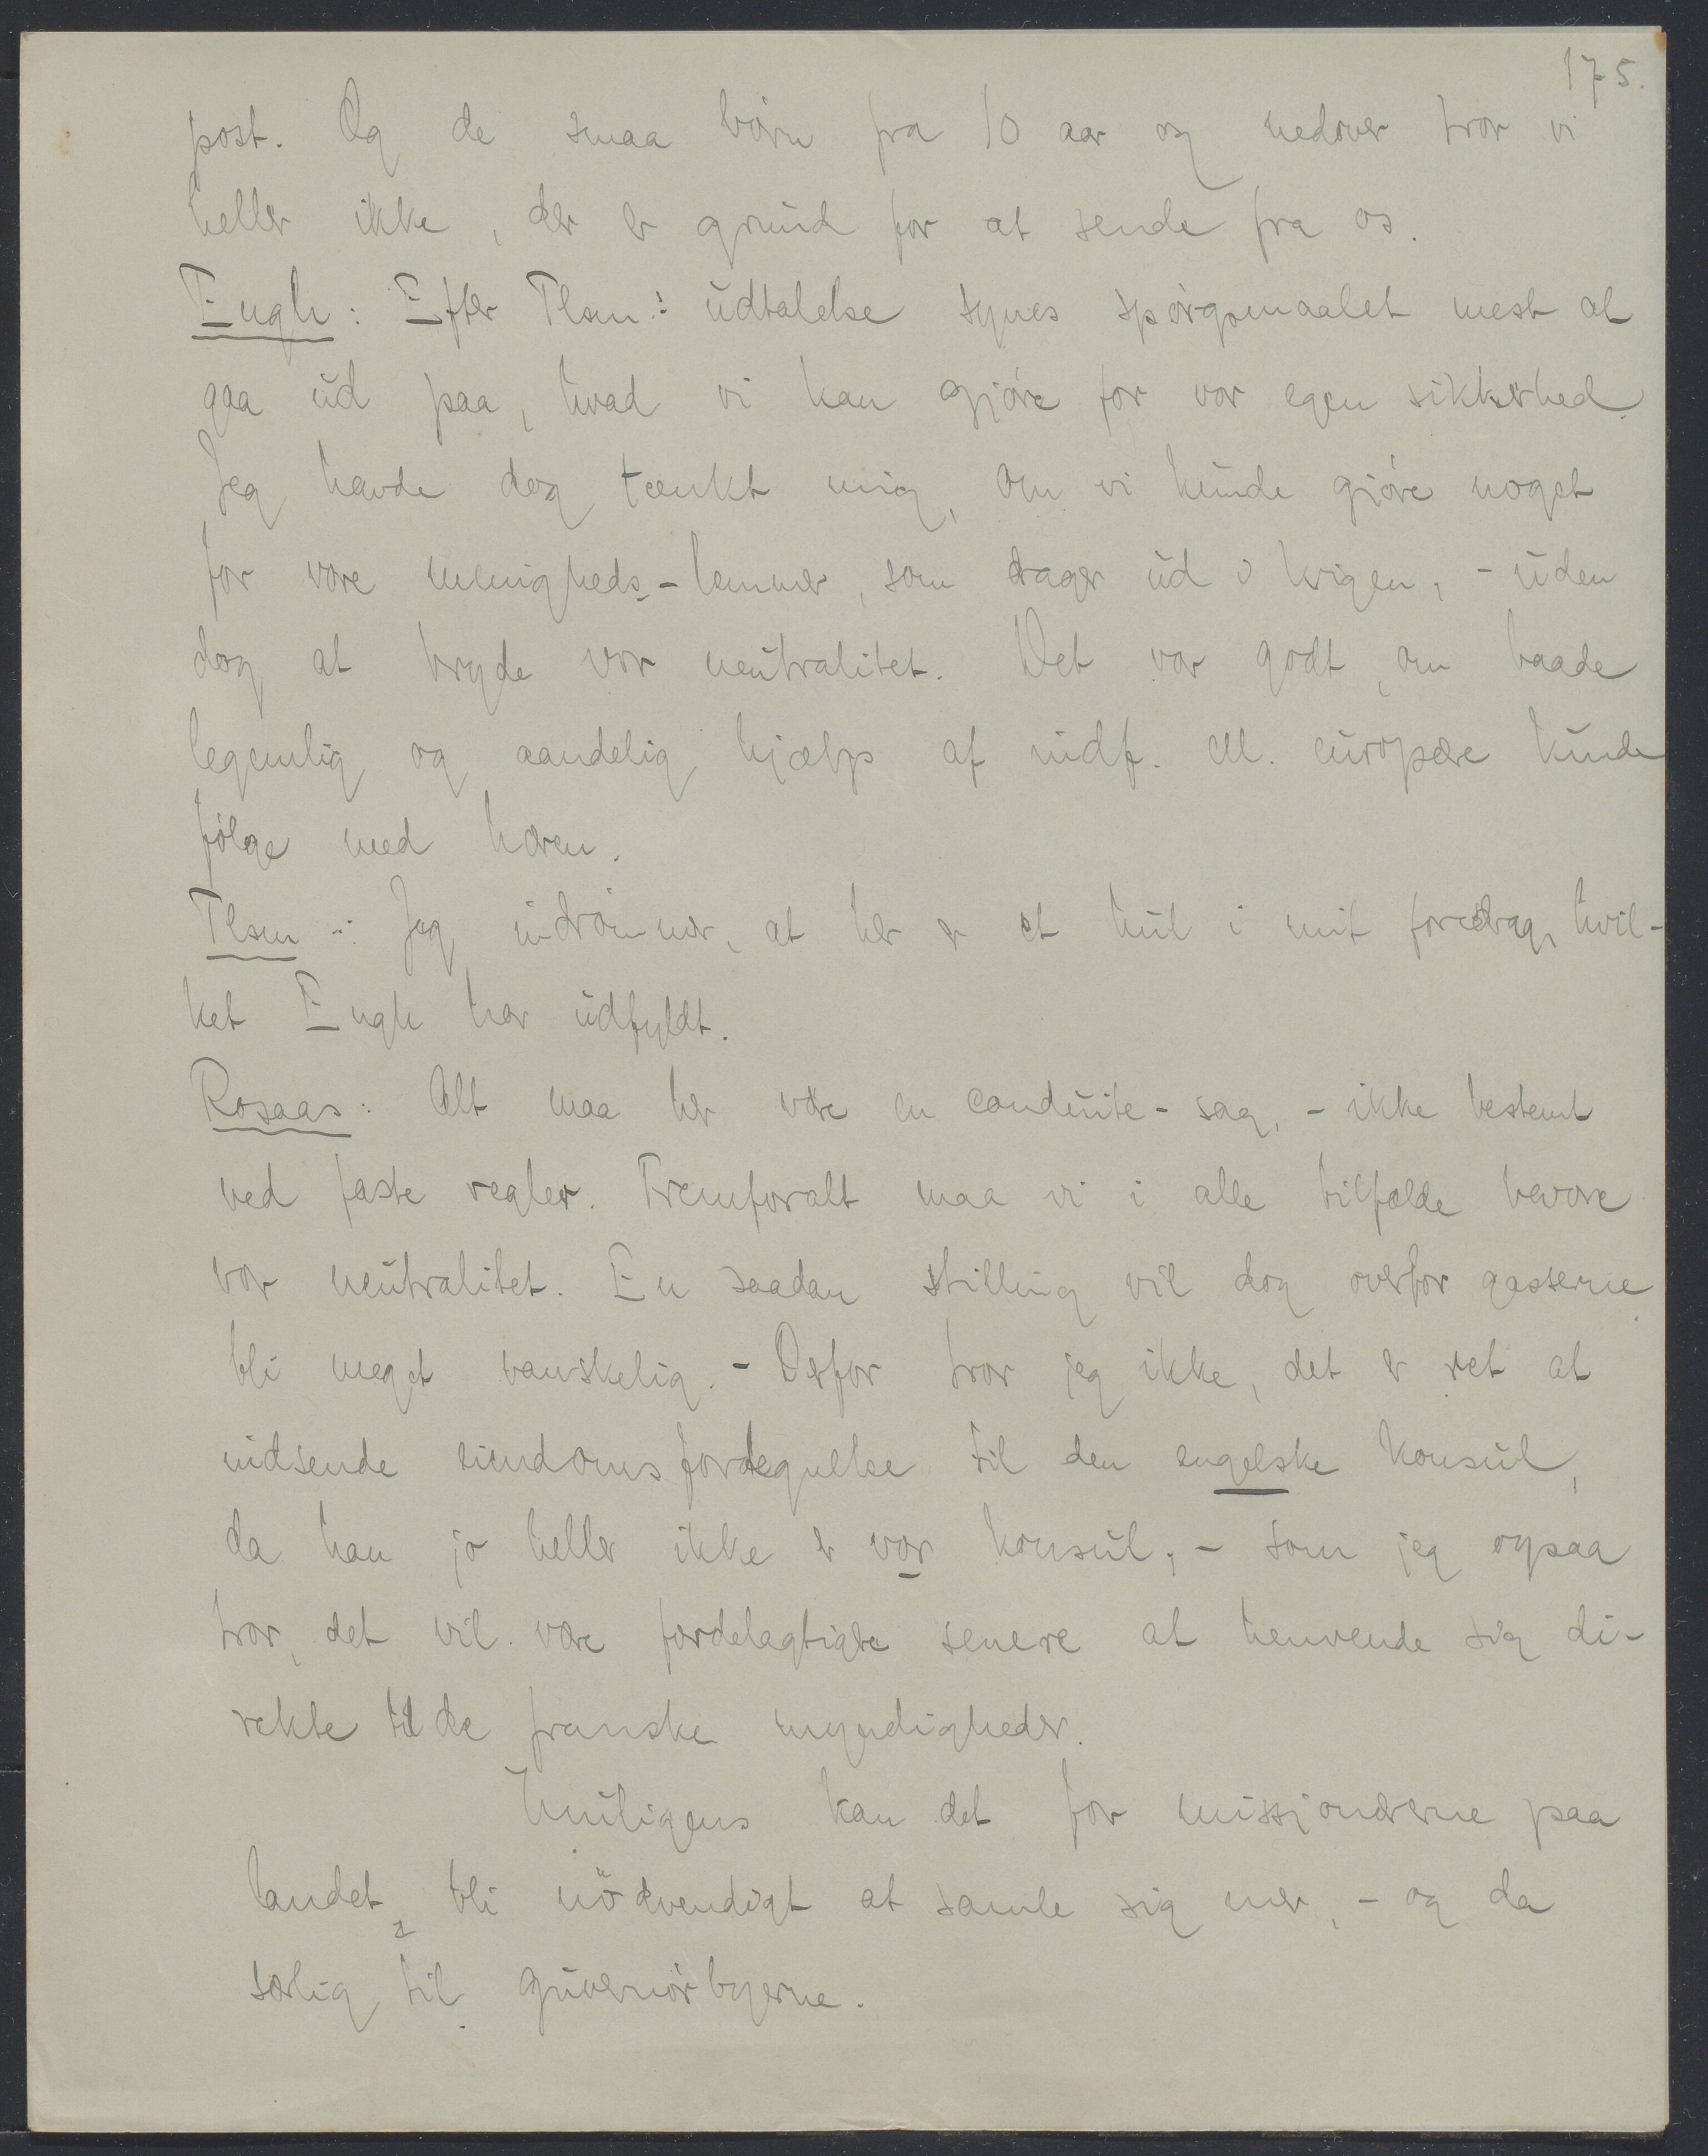 175.
post. Og de smaa börn fra 10 aar og nedover tror vi
heller ikke, der er grund for at sende fra os.
Engh: Efter Tlsen.s udtalelse synes spörgsmaalet mest at
gaa ud paa, hvad vi kan gjöre for vor egen sikkerhed.
Jeg havde dog tænkt mig, om vi kunde gjöre noget
for vore menigheds-lemmer, som drager ud i krigen, - uden
dog at bryde vor neutralitet. Det var godt, om baade
legemlig og aandelig hjælp af indf. ell. europæere kunde
fölge med hæren.
Tlsen: Jeg indrömmer, at her er et hul i mit foredrag, hvil-
ket Engh har udfyldt.
Rosaas: Alt maa her være en conduite-sag, - ikke bestemt
ved faste regler. Fremforalt maa vi i alle tilfælde bevare
vor neutralitet. En saadan stilling vil dog overfor gasserne
bli meget vanskelig. - Derfor tror jeg ikke, det er ret at
indsende eiendomsfortegnelse til den engelske konsul,
da han jo heller ikke er vor konsul, - som jeg ogsaa
tror, det vil være fordelagtigere senere at henvende sig di-
rekte til de franske myndigheder.
Muligens kan det for missjonærerne paa
landet bli nödvendigt at samle sig mer, - og da
særlig til guvernörbyerne.